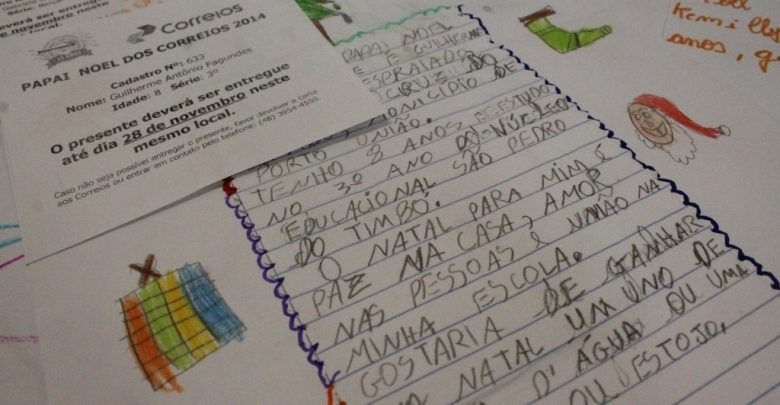 deverá ser entregue
Correios
PAPAI NOEL DOS CORREIOS 2014
Cadastro Nº: 633
Nome: Guilherme Antônio Fagundes
Idade: 8 Série: 3º
O presente deverá ser entregue
até dia 28 de novembro neste
mesmo local.
Caso não seja possível entregar o presente, favor devolver a carta
aos Correios ou entrar em contato pelo telefone: (48) 3954-4550.
PAPAI NOEL
É GUILHERME
ESPRAIADO
CRUZ DO
MUNICÍPIO DE
PORTO UNIÃO.
TENHO 8 ANOS, ESTUDO
NO 3º ANO DO NÚCLEO
EDUCACIONAL SÃO PEDRO
DO TIMBÓ.
O NATAL PARA MIM É
PAZ NA CASA, AMOR
NAS PESSOAS E UNIÃO NA
MINHA ESCOLA.
GOSTARIA DE GANHAR
NATAL UM UNO DE
D'ÁGUA OU UMA
OU ESTOJO,
anos, g